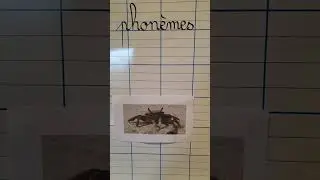 phonèmes